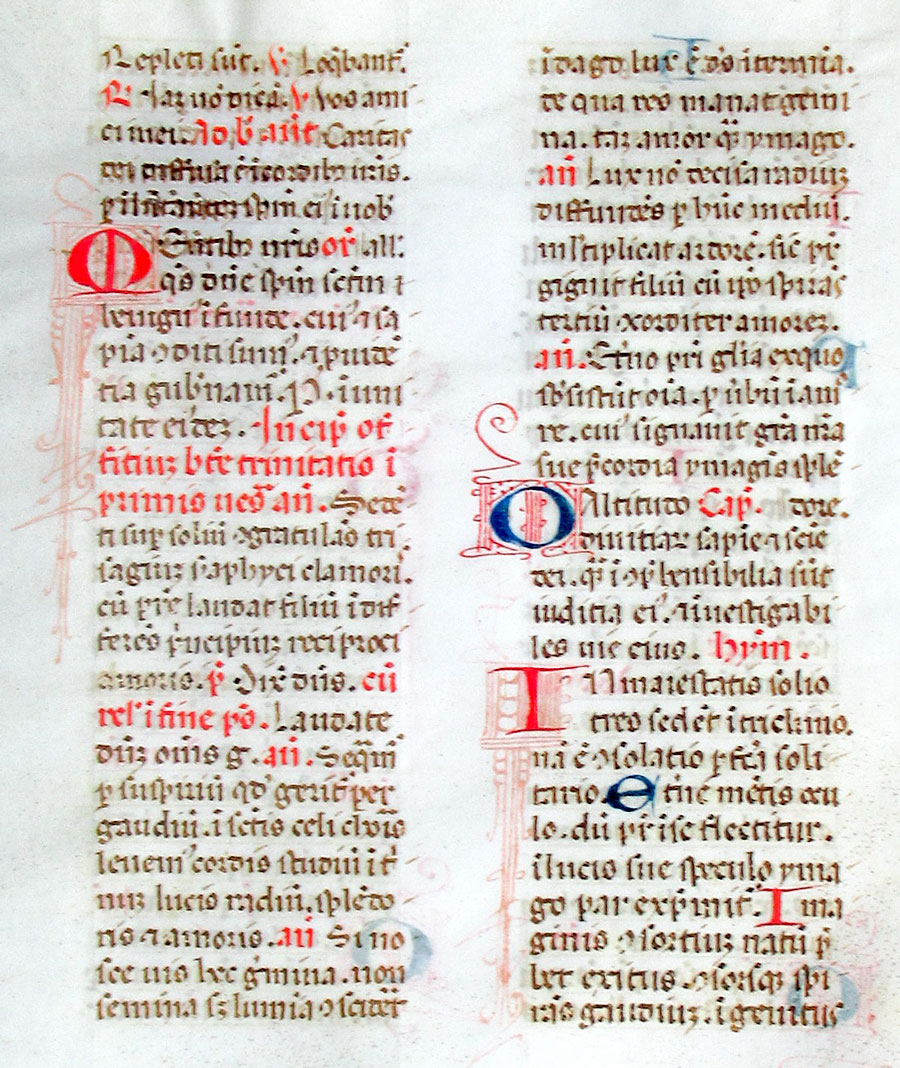 Repleti sūt. ꝟ Loq̄bant᷑.
R̷ Iaz nō dicā. ꝟ Vos ami
ci mei. Ad b̄. an̄t. Caritas
dei diffusa ē ī cordib; nr̄is.
spm̄ ei᷑ ī uob
MEntib; nr̄is or̄ all᷑.
q̄s dn̄e spm̄ sc̄tm ⁊
benign᷑ īfunde. cui᷑ ⁊ sa
pīa ↄditi sum᷑. ⁊ puidē
tia gub̄nam᷑. P. ī uni
tate ei᷑dez. Incip̄ of
fitiuz bt̄e trinitatis ī
primis ueẜ. an̄. Sedē
ti sup̄ soliū ↄgratulās tri
sagiuz saphyci clamori.
cū pr̄e laudat filiū īdif
ferēs pͥncipiuz reciproci
amoris. p̄ Dix̄ dn̄s. cū
rel᷑ ī fine ps̄. Laudate
dn̄z om̄s g. an̄. Seq̄m᷑
ꝑ suspiriū qd᷑ gerit᷑ per
gaudiū. ī sc̄tis celi clūis
leuem᷑ cordis studiū it᷑
nuz lucis radiū. splēdo
ris ⁊ amoris. an̄ Si no
sce uis hec gͥmina. non
semina sz lumīa ↄscidet᷑
īdago lux ē ds̄ itermīa.
de qua res manat gemi
na. taz amor qͣ ymago.
an̄ Lux nō decisa radiuz
diffundēs ꝑ hūc mediū.
ml̄tiplicat ardorē. sic pr̄
gignit filiū cū quo spiras
tertiū xorditer amorez.
an̄. Et᷑no pr̄i glīa ex quo
sb̄sistūt oīa. ꝑ ūbū ī am̄
re. cui᷑ signauit grā nrā
sue pͥcordia ymagīs splē
O Altitudo Cap̄. dore.
diuitiaꝝ sapīe ⁊ sciē
dei. qͣ ī ↄp̄hensibilia sūt
iuditia ei᷑. ⁊ īuestigabi
les uie eius. hym̄.
IN maiestatis solio
tres sedēt ī triclinio.
nā ē ↄsolatio ꝑfc̄i soli
tario. Et᷑ne mētis ocu
lo. dū pr̄ ī se flectitur.
ī lucis sue speculo yma
go par expͥmit᷑. Ima
ginis ↄsortiuz natū p̄
bet exitus. ↄsorsq; spi
rās gaudiuz. ī genitus